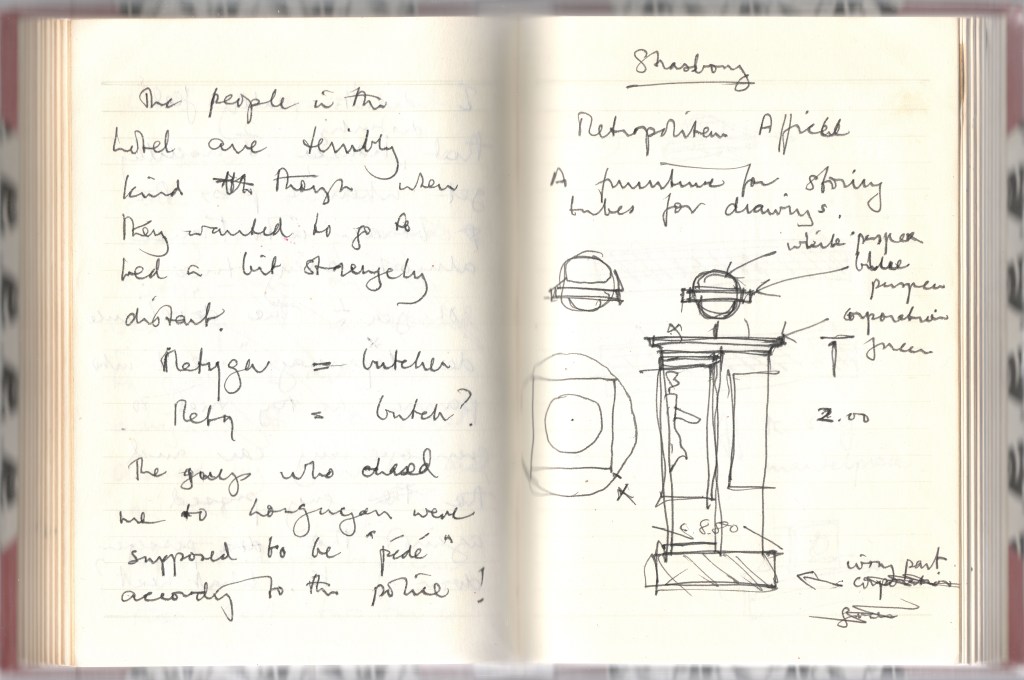 The people in the
hotel are terribly
kind though when
they wanted to go to
bed a bit strangely
distant.
Metzger = butcher
Metz = butch?
The guys who chased
me to were
supposed to be "pédé"
according to the police!
Strasbourg
Metropolitan
A furniture for storing
tubes for drawings.
white perspex
blue
perspex
corporation
green
2.00
x
x
c 80
irony part
corporation